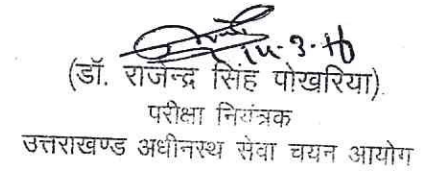 14-3-16
(डॉ. राजेन्द्र सिंह पोखरिया)
परीक्षा नियंत्रक
उत्तराखण्ड अधीनस्थ सेवा चयन आयोग